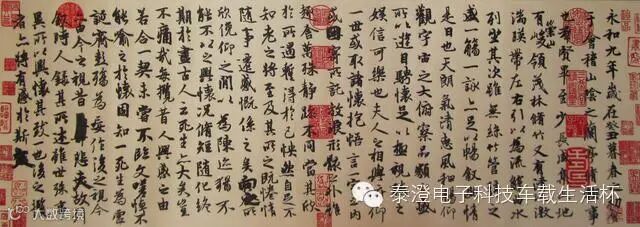 永和九年歲在癸丑暮春之初會
于會稽山陰之蘭亭脩稧事
也羣賢畢至少長咸集此地
有崇山峻領茂林脩竹又有清流激
湍暎帶左右引以為流觴曲水
列坐其次雖無絲竹管弦之
盛一觴一詠亦足以暢敘幽情
是日也天朗氣清惠風和暢仰
觀宇宙之大俯察品類之盛
所以遊目騁懷足以極視聽之
娛信可樂也夫人之相與俯仰
一世或取諸懷抱悟言一室之內
或因寄所託放浪形骸之外雖
趣舍萬殊靜躁不同當其欣
於所遇蹔得於己怏然自足不
知老之將至及其所之既惓情
隨事遷感慨係之矣向之所
欣俛仰之閒以為陳迹猶不
能不以之興懷況脩短隨化終
期於盡古人云死生亦大矣豈
不痛哉每攬昔人興感之由
若合一契未嘗不臨文嗟悼不
能喻之於懷固知一死生為虛
誕齊彭殤為妄作後之視今
亦由今之視昔悲夫故列
敘時人錄其所述雖世殊事
異所以興懷其致一也後之攬
者亦將有感於斯文
泰澄电子科技车载生活杯
大数跨境